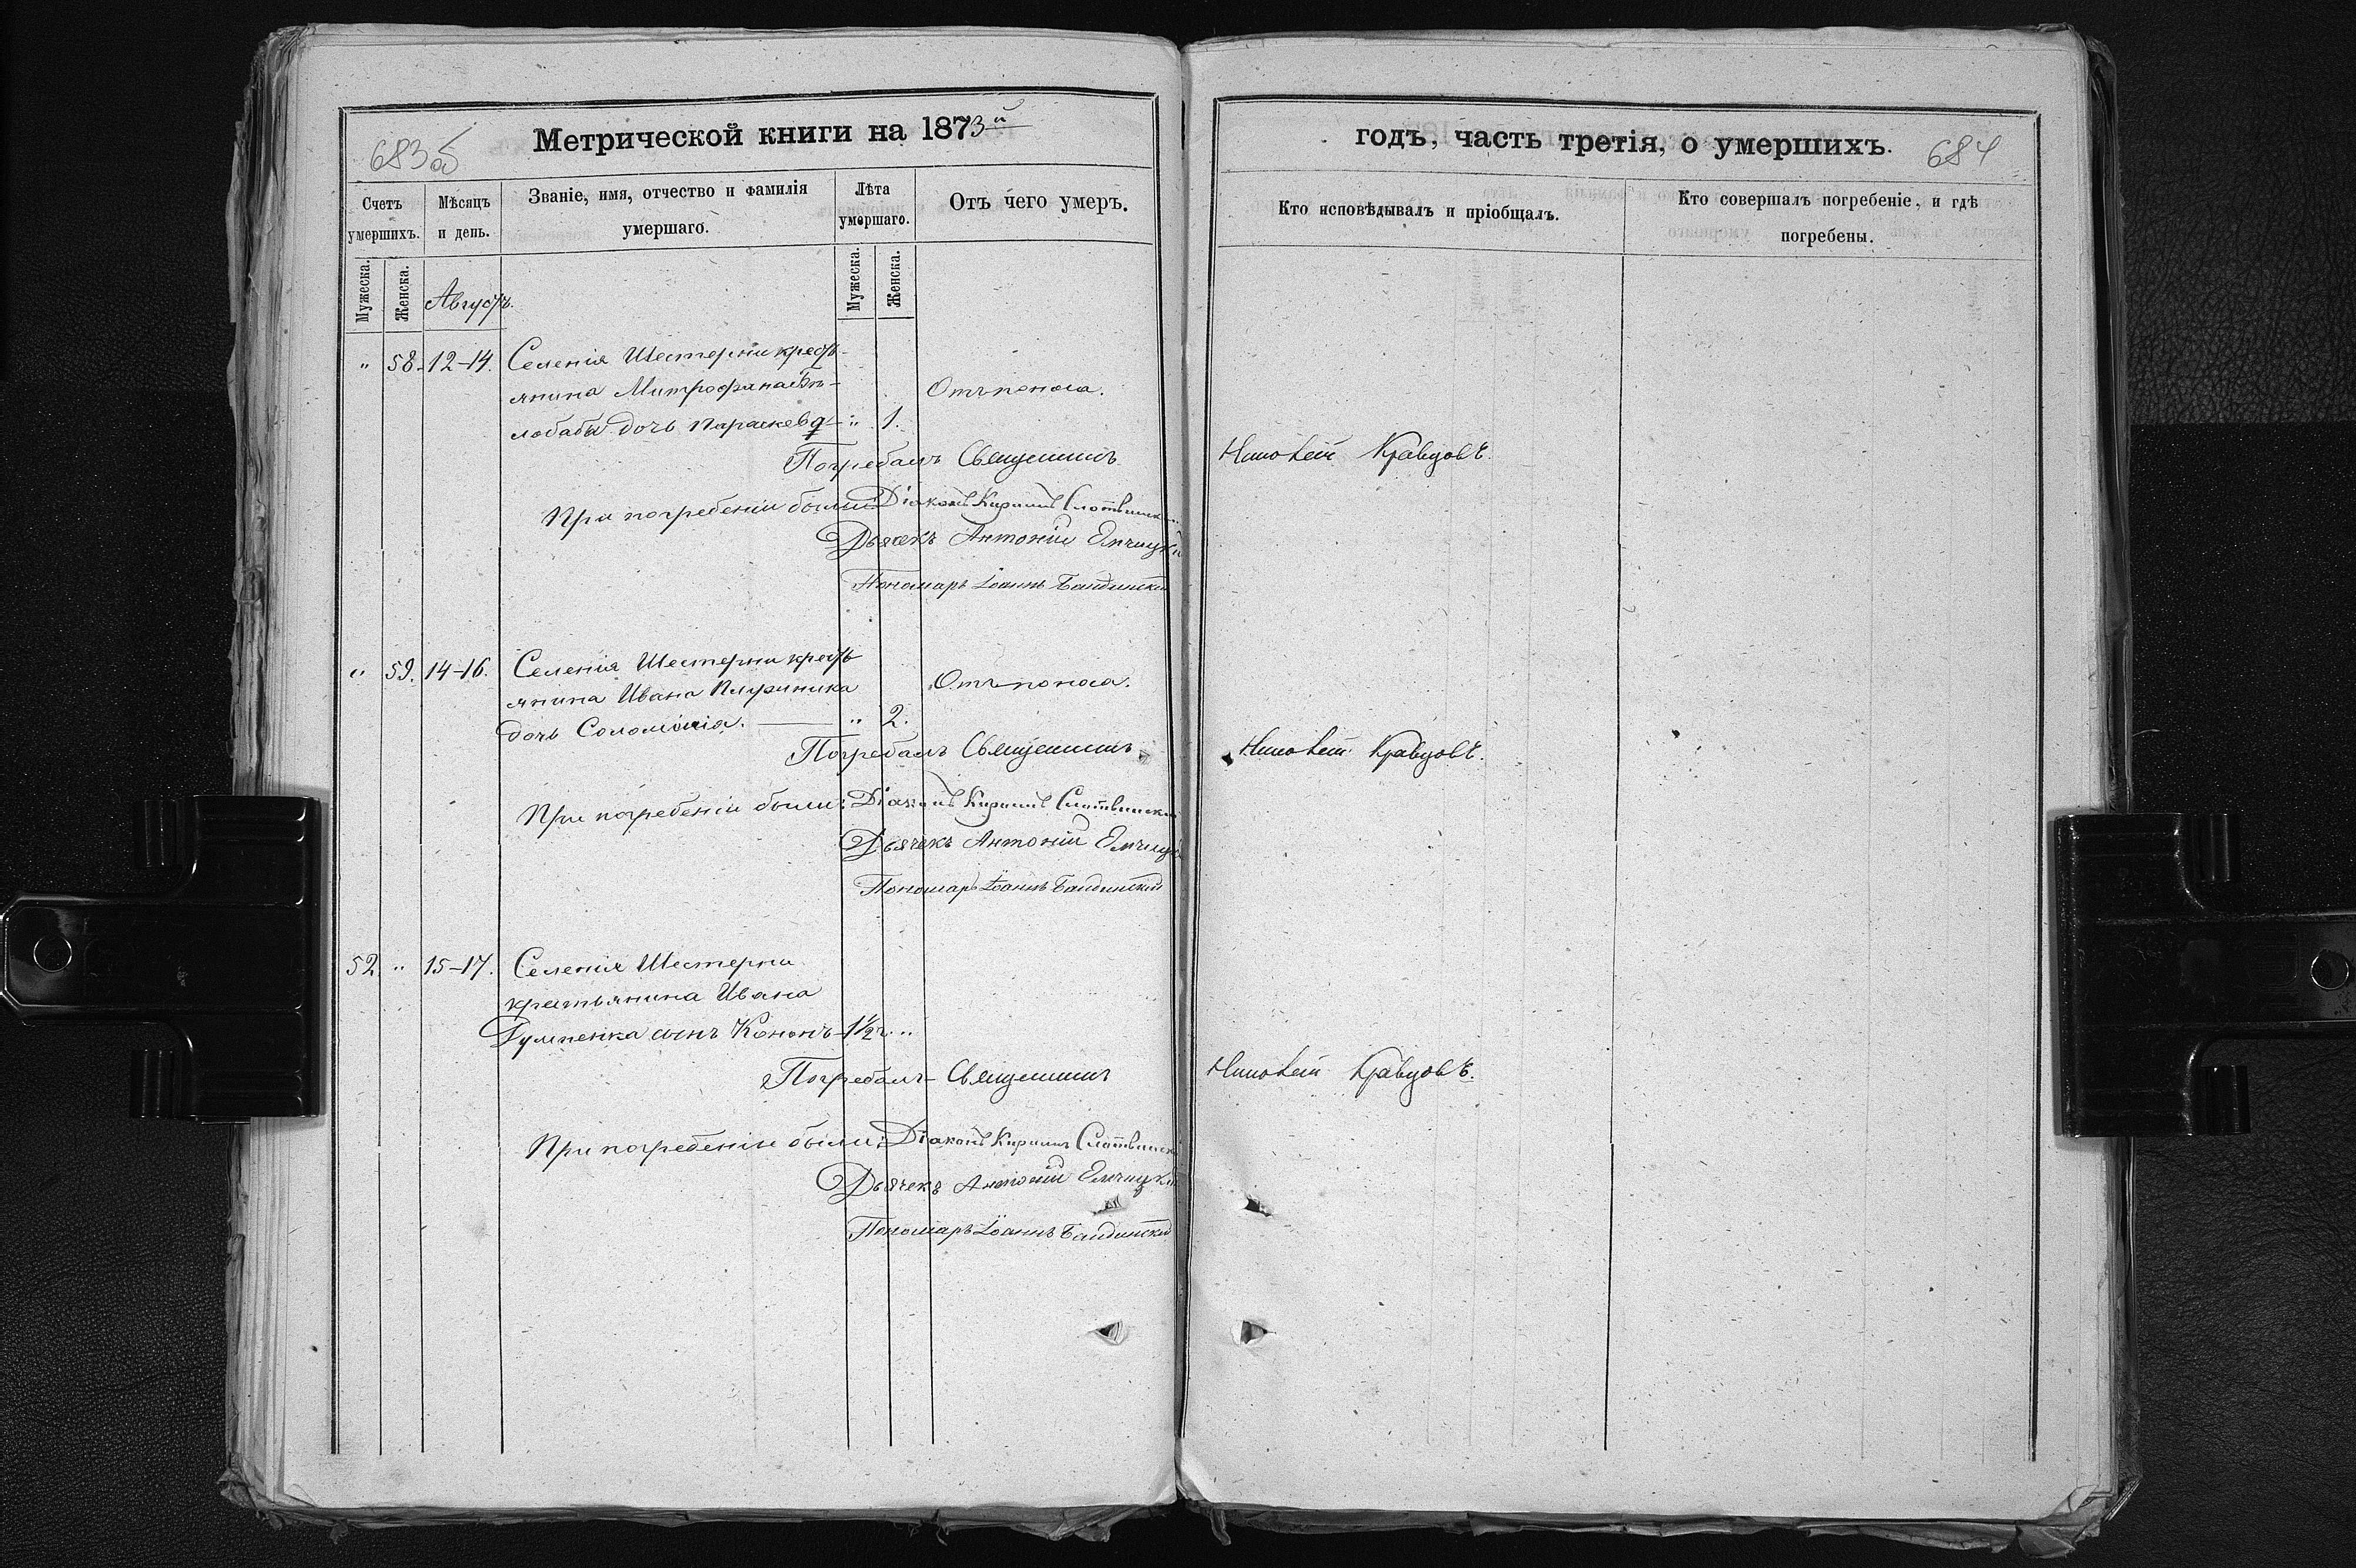 683об
Метрической книги на 1873й
Счетъ умершихъ.
Мѣсяцъ и день.
Званіе, имя, отчество и фамилія умершаго.
Лѣта умершаго.
Отъ чего умеръ.
Мужеска.
Женска.
Августъ.
Мужеска.
Женска.
" 58. 12-14. Селенія Шестерни кресть-
янина Митрофана
дочь Параскева " 1. Отъ поноса.
Погребалъ Священникъ
При погребеніи были: Діаконъ Кириллъ
Дьячекъ Антоній
Пономарь Іоаннъ
" 59. 14-16. Селенія Шестерни кресть
янина Ивана Отъ поноса.
дочь Соломонія. " 2.
Погребалъ Священникъ
При погребеніи были: Діаконъ Кириллъ
Дьячекъ Антоній
Пономарь Іоаннъ
52 " 15-17. Селенія Шестерни
крестьянина Ивана
сынъ Кононъ - 1½ "
Погребалъ Священникъ
При погребеніи были: Діаконъ Кириллъ
Дьячекъ Антоній
Пономарь Іоаннъ
годъ, часть третія, о умершихъ.
684
Кто исповѣдывалъ и пріобщалъ.
Кто совершалъ погребеніе, и гдѣ погребены.
Кравцовъ.
Кравцовъ.
Кравцовъ.